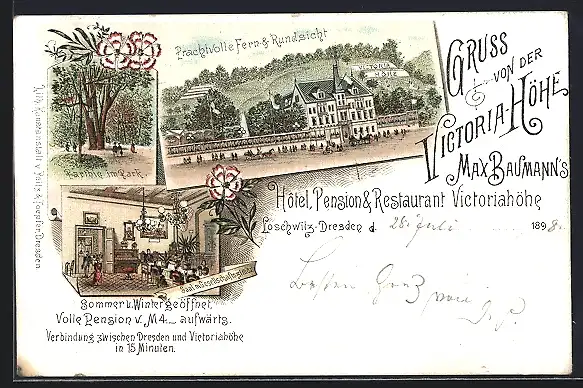 Prachtvolle Fern- & Rundsicht
VICTORIA
HÖHE
GRUSS
VON DER
VICTORIA-HÖHE
MAX BAUMANN'S
Hôtel, Pension & Restaurant Victoriahöhe
Loschwitz-Dresden d. 28. Juli 1898.
Parthie im Park.
Sommer u. Winter geöffnet.
Volle Pension v. M 4.— aufwärts.
Verbindung zwischen Dresden und Victoriahöhe
in 15 Minuten.
Besten Gruß
von
Lith. Kunstanstalt v. & Toepfer, Dresden